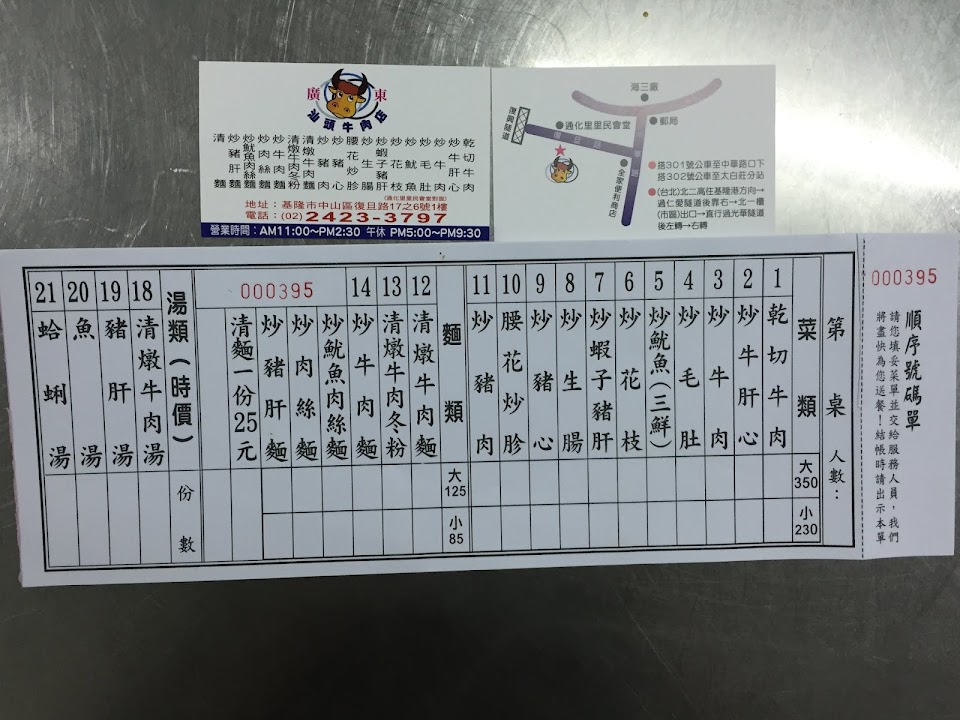 廣東
汕頭牛肉店
乾切牛肉
炒牛肝心
炒牛肉
炒毛肚
炒魷魚
炒花枝
炒蝦子豬肝
炒生腸
腰花炒胗
炒豬心
炒豬肉
清燉牛肉麵
清燉牛肉冬粉
炒牛肉麵
炒肉絲麵
炒魷魚肉絲麵
炒豬肝麵
清麵
(通化里里民會堂對面)
地址：基隆市中山區復旦路17之6號1樓
電話：(02)2423-3797
營業時間：AM11:00～PM2:30 午休 PM5:00～PM9:30
海三廠
郵局
通化里里民會堂
復興隧道
復旦路
全家便利商店
搭301號公車至中華路口下
搭302號公車至太白莊分站
(台北)北二高往基隆港方向→
過仁愛隧道後靠右→北一櫃
(市區)出口→直行過光華隧道
後左轉→右轉
000395
順序號碼單
請您填妥菜單並交給服務人員，我們
將盡快為您送餐！結帳時請出示本單
第 桌 人數：
菜類 大350 小230
1 乾切牛肉
2 炒牛肝心
3 炒牛肉
4 炒毛肚
5 炒魷魚(三鮮)
6 炒花枝
7 炒蝦子豬肝
8 炒生腸
9 炒豬心
10 腰花炒胗
11 炒豬肉
麵類 大125 小85
12 清燉牛肉麵
13 清燉牛肉冬粉
14 炒牛肉麵
000395
炒魷魚肉絲麵
炒肉絲麵
炒豬肝麵
清麵一份25元
湯類(時價) 份數
18 清燉牛肉湯
19 豬肝湯
20 魚湯
21 蛤蜊湯